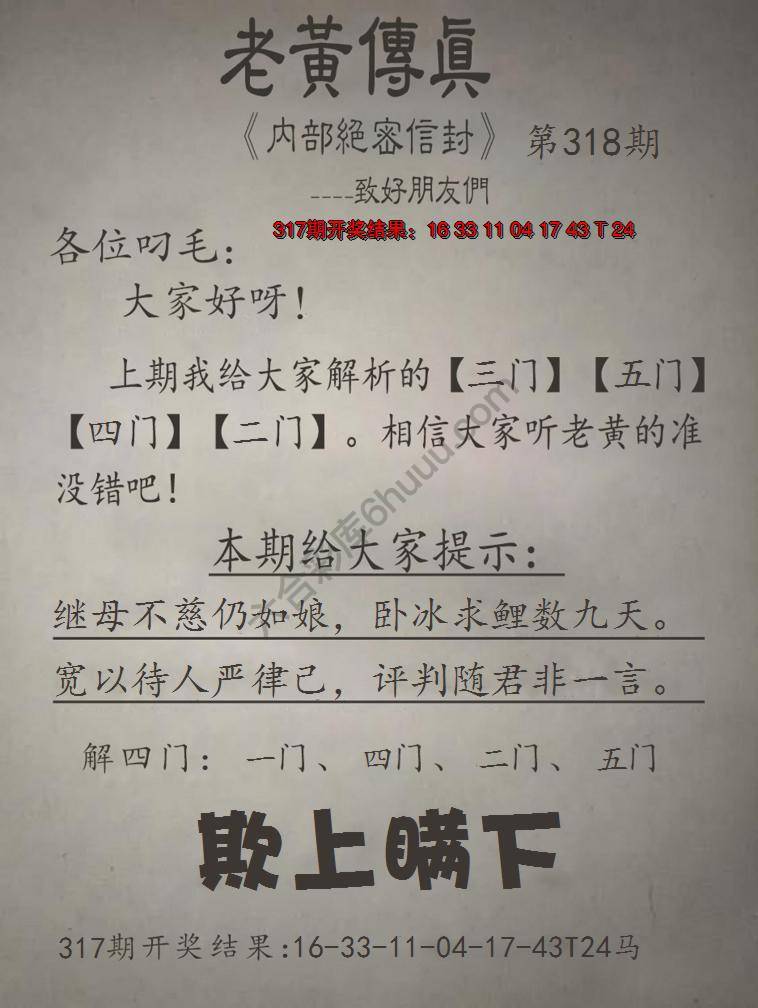 老黃傳眞
《内部絕密信封》 第318期
----致好朋友們
317期开奖结果：16 33 11 04 17 43 T 24
各位叼毛：
大家好呀！
上期我给大家解析的【三门】【五门】
【四门】【二门】。相信大家听老黄的准
没错吧！
本期给大家提示：
继母不慈仍如娘，卧冰求鲤数九天。
宽以待人严律己，评判随君非一言。
解四门：一门、四门、二门、五门
欺上瞒下
317期开奖结果:16-33-11-04-17-43T24马
六合彩库6huuu.com